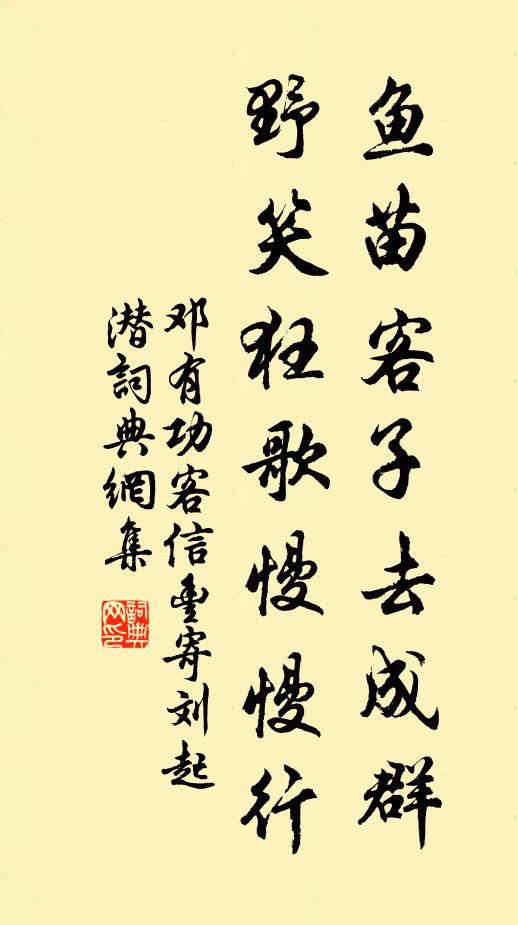 鱼苗客子去成群
野笑狂歌慢慢行
邓有功客信丰寄刘起
潜詞典網集
詞典网印